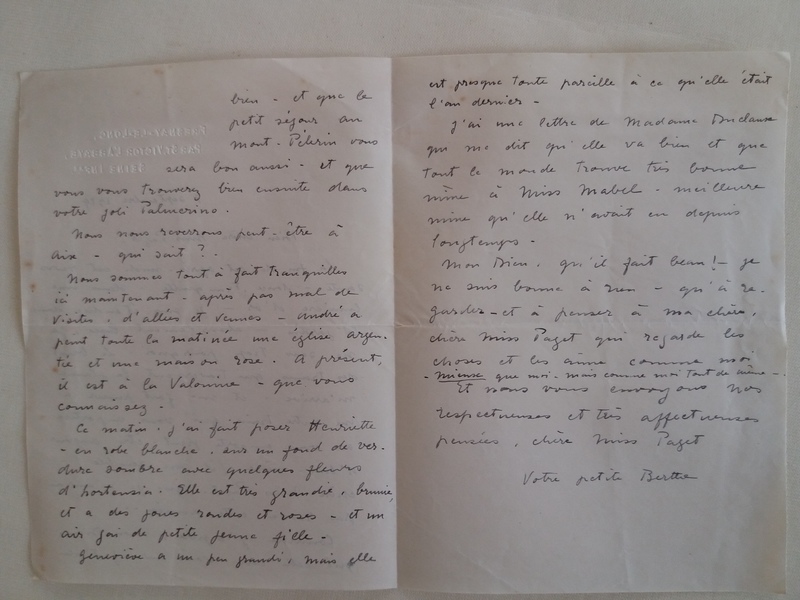 bien - et que le
petit séjour au
Mont-Pélerin vous
sera bon aussi - et que
vous vous trouverez bien ensuite dans
votre joli Palmerino.
Nous nous reverrons peut-être à
Aix - qui sait ?.
Nous sommes tout à fait tranquilles
ici maintenant - après pas mal de
visites, d'allées et venues - André a
peint toute la matinée une église argen-
tée et une maison rose. A présent,
il est à la Valonine - que vous
connaissez -
Ce matin, j'ai fait poser Henriette
- en robe blanche, sur un fond de ver-
dure sombre avec quelques fleurs
d'hortensia. Elle est très grandie, brunie,
et a des joues rondes et roses - et un
air gai de petite jeune fille -
Geneviève a un peu grandi, mais elle
est presque toute pareille à ce qu'elle était
l'an dernier -
J'ai une lettre de Madame Duclaux
qui me dit qu'elle va bien et que
tout le monde trouve très bonne
mine à Miss Mabel - meilleure
mine qu'elle n'avait eu depuis
longtemps -
Mon Dieu, qu'il fait beau ! - je
ne suis bonne à rien - qu'à re-
garder - et à penser à ma chère,
chère Miss Paget qui regarde les
choses et les aime comme moi
- mieux que moi - mais comme moi tout de même -.
Et nous vous envoyons nos
respectueuses et très affectueuses
pensées, chère Miss Paget
Votre petite Berthe